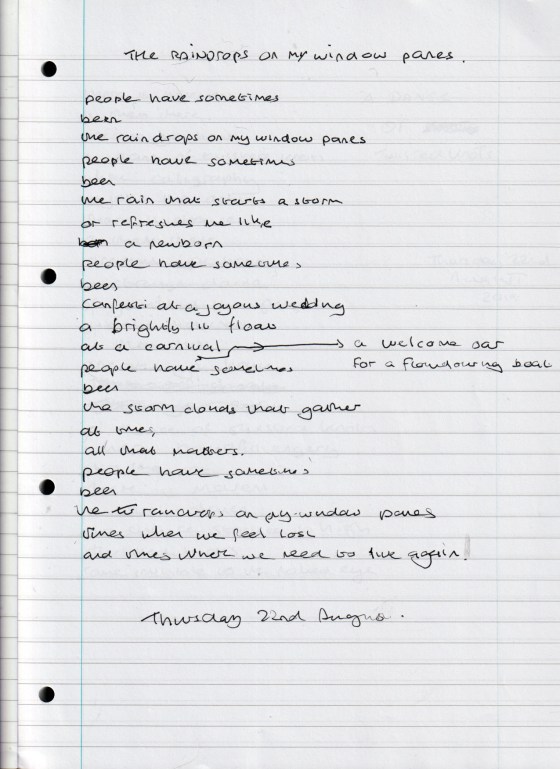 THE RAINDROPS ON MY window panes.
people have sometimes
been
the raindrops on my window panes
people have sometimes
been
the rain that starts a storm
or refreshes me like
a newborn
people have sometimes
been
Confetti at a joyous wedding
a brightly lit float
at a carnival → a welcome oar
for a floundering boat
people have sometimes
been
the storm clouds that gather
at times,
all that matters.
people have sometimes
been
the raindrops on my window panes
times when we feel lost
and times when we need to live again!
Thursday 22nd August.